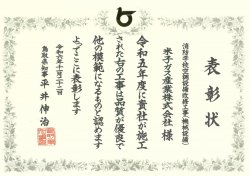 表彰状
消防学校空調設備改修工事(機械設備)
米子ガス産業株式会社 様
令和五年度に貴社が施工
された右の工事は品質が優良で
他の模範になるものと認めます
よってここに表彰します
令和六年十一月二十一日
鳥取県知事 平井伸治